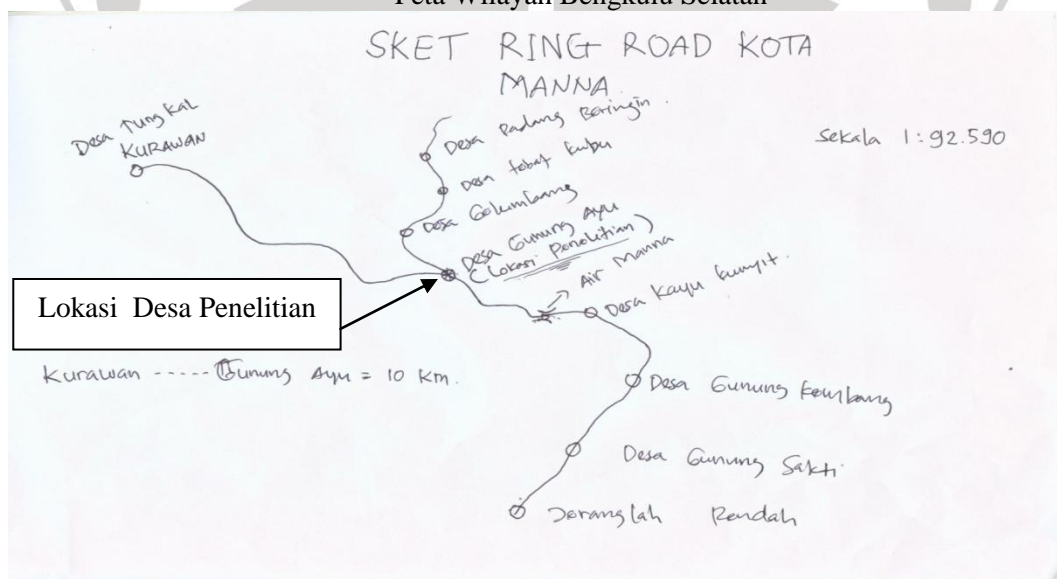 Peta Wilayah Bengkulu Selatan
SKET RING ROAD KOTA
MANNA
Desa Tungkal
KURAWAN
Desa Padang Beringin
Desa tebat kubu
Desa Gelumbang
Desa Gunung Ayu
(Lokasi Penelitian)
Air Manna
Desa Kayu kunyit.
Sekala 1:92.590
Lokasi Desa Penelitian
Kurawan ----- Gunung Ayu = 10 Km.
Desa Gunung Kembang
Desa Gunung Sakti
Jeranglah Rendah